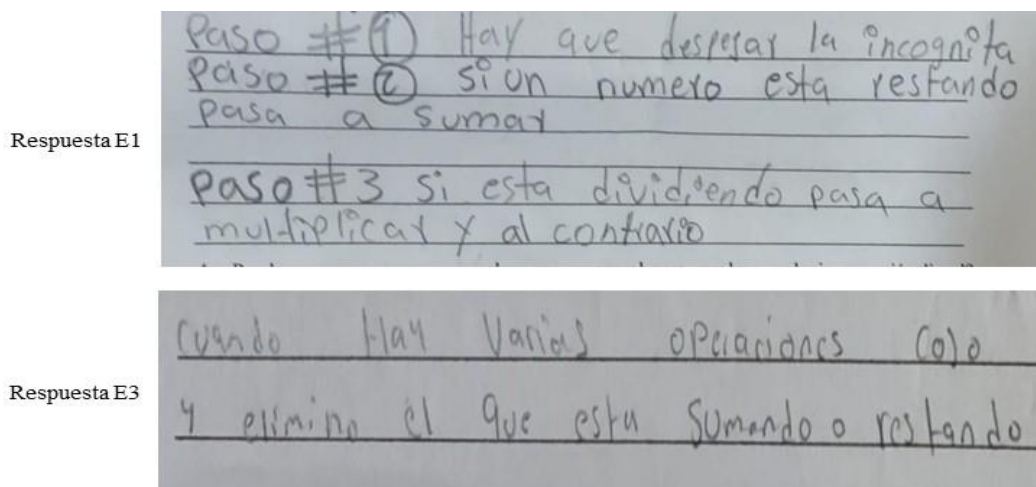 Respuesta E1
Paso #① Hay que despejar la incognita
Paso #② si un numero esta restando
pasa a sumar
Paso #3 si esta dividiendo pasa a
multiplicar y al contrario
Respuesta E3
Cuando Hay Varias operaciones Cojo
y elimino el que esta sumando o restando